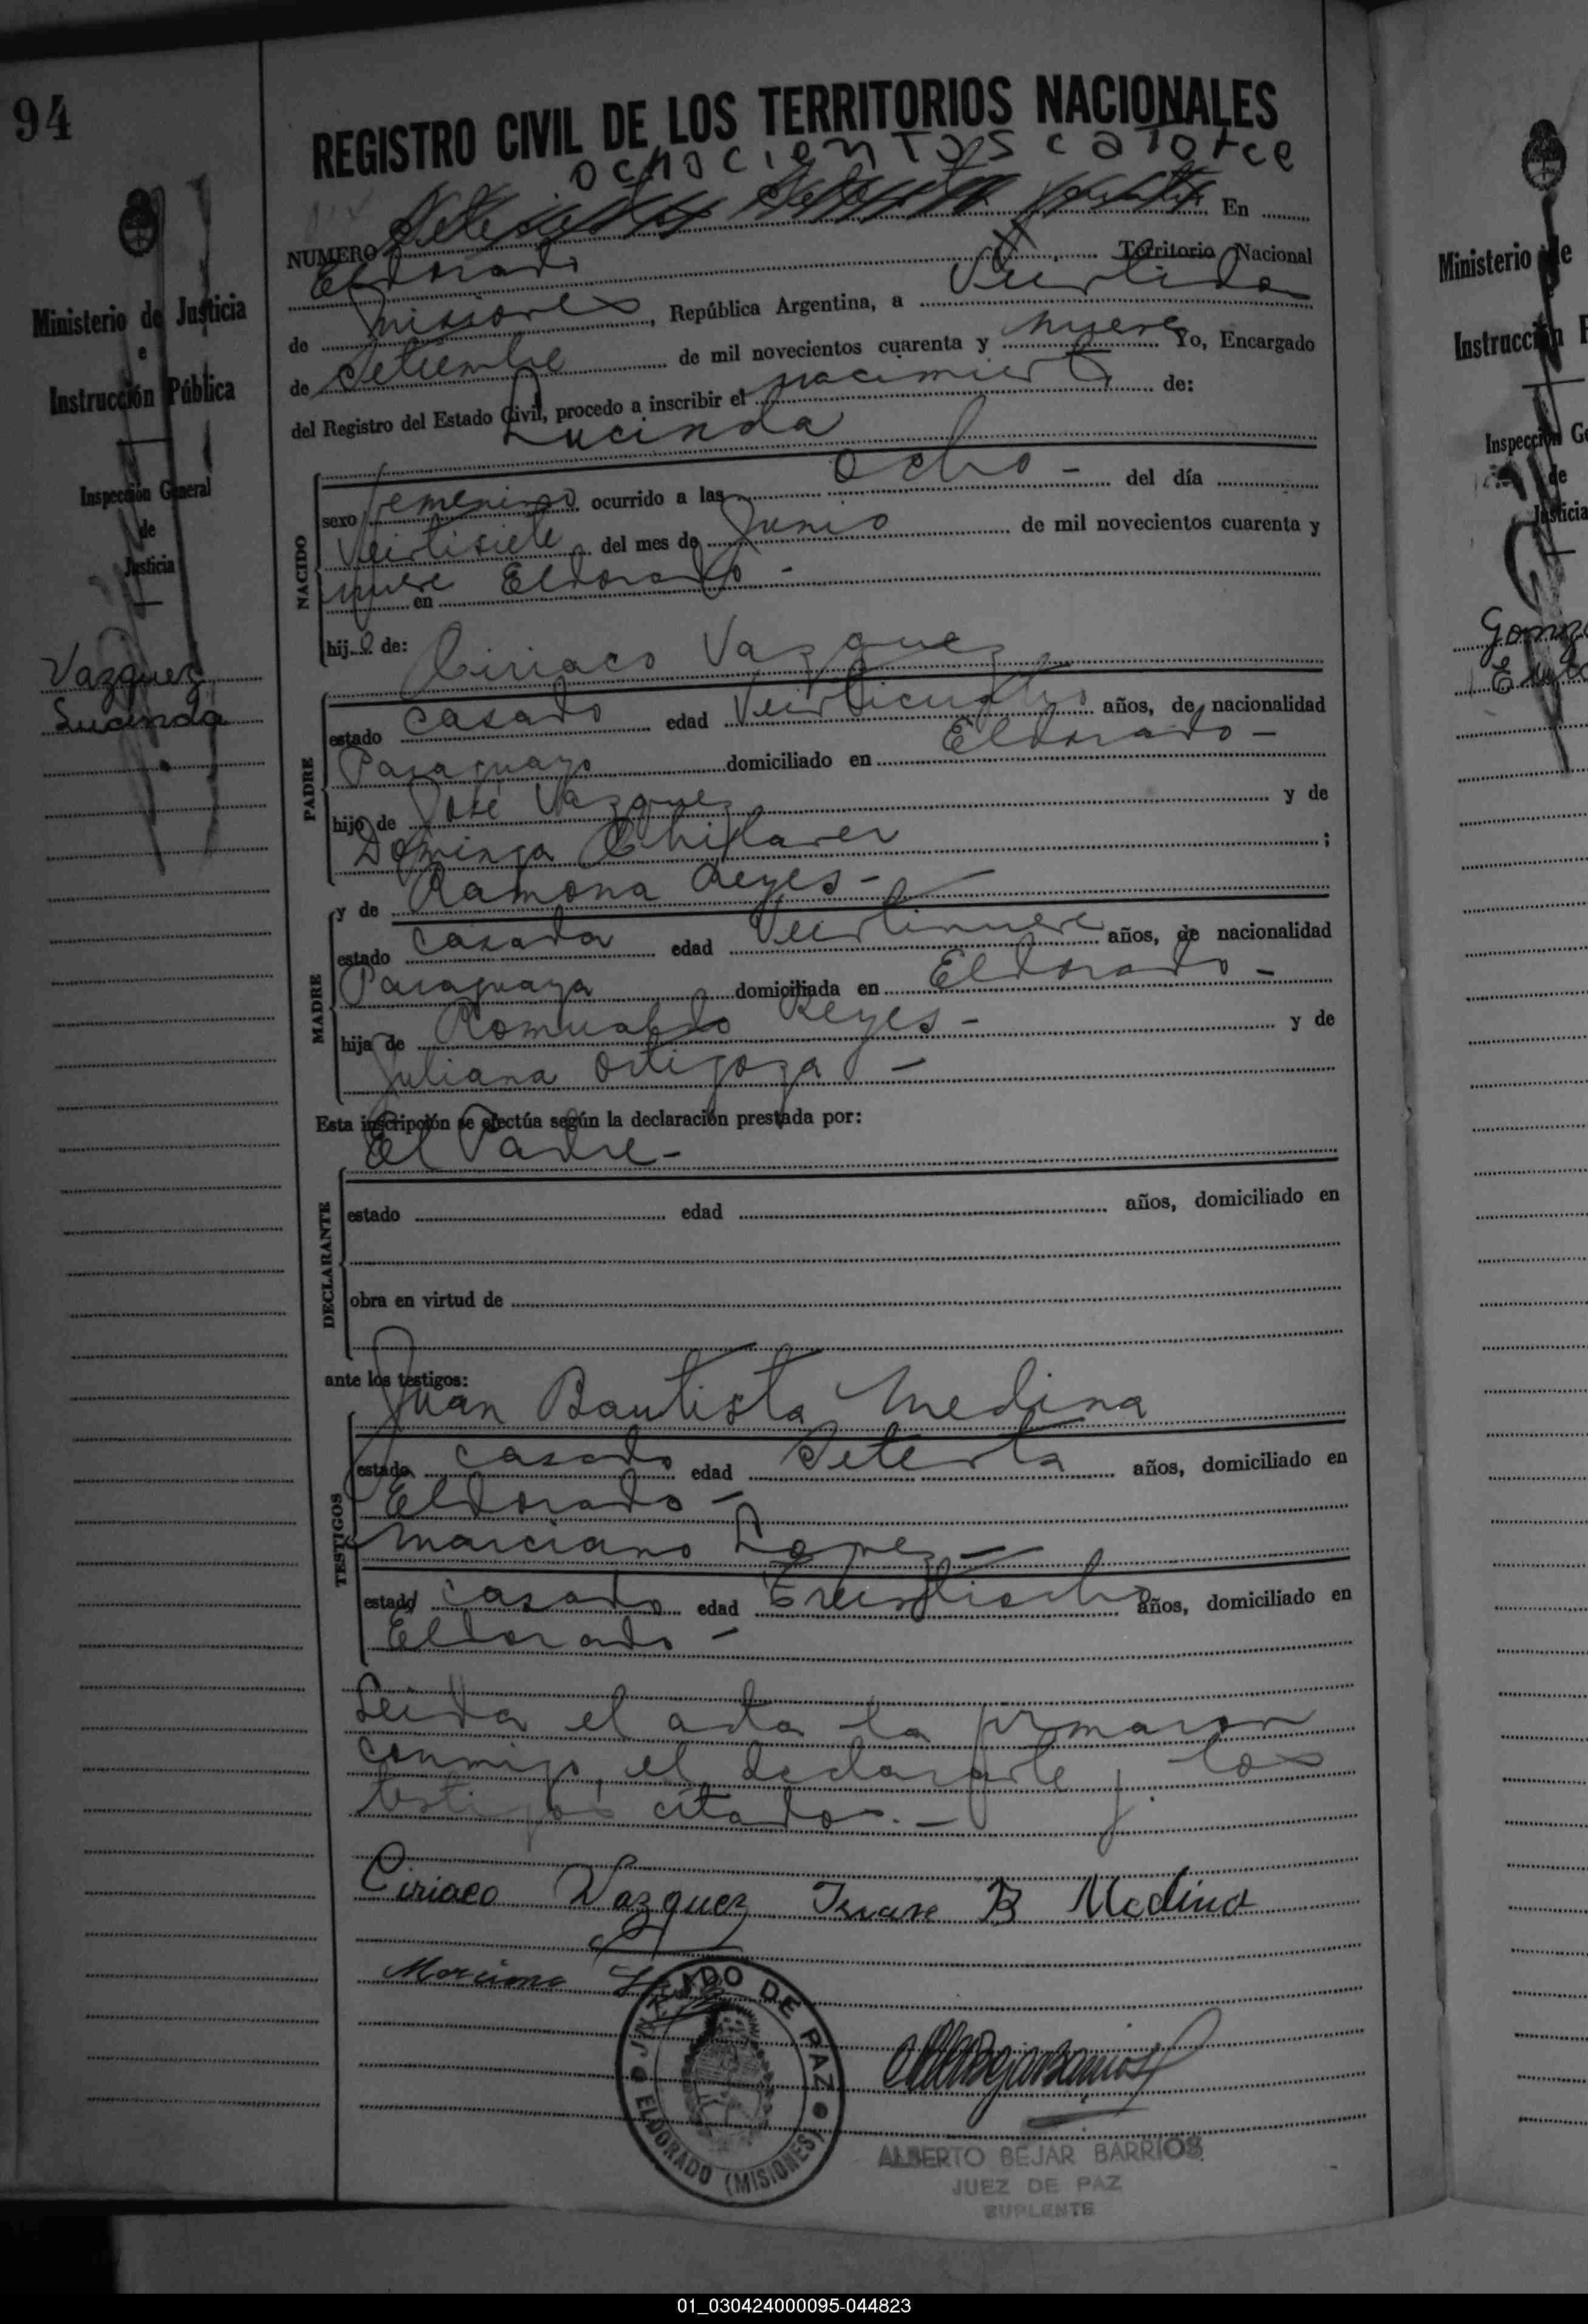 94
REGISTRO CIVIL DE LOS TERRITORIOS NACIONALES
ochocientos catorce
NUMERO En
Eldorado Territorio Nacional
de Misiones, República Argentina, a Veintidos
de Setiembre de mil novecientos cuarenta y nueve Yo, Encargado
del Registro del Estado Civil, procedo a inscribir el nacimiento de:
Lucinda
NACIDO
sexo femenino ocurrido a las ocho - del día
Veintisiete del mes de Junio de mil novecientos cuarenta y
nueve en Eldorado -
hija de: Ciriaco Vazquez
PADRE
estado casado edad Veinticuatro años, de nacionalidad
Paraguayo domiciliado en Eldorado -
hijo de José Vazquez y de
Dominga ;
y de Ramona Reyes -
MADRE
estado casada edad Veintinueve años, de nacionalidad
Paraguaya domiciliada en Eldorado -
hija de Romualdo Reyes - y de
Juliana Ortigoza -
Esta inscripción se efectúa según la declaración prestada por:
El Padre -
DECLARANTE
estado edad años, domiciliado en
obra en virtud de
ante los testigos:
Juan Bautista Medina
TESTIGOS
estado casado edad Setenta años, domiciliado en
Eldorado -
Marciano Lopez -
estado casado edad Treintiocho años, domiciliado en
Eldorado -
Leida el acta la firmaron
conmigo, el declarante y los
testigos citados. -
Ciriaco Vazquez Juan B Medina
Marciano
JUZGADO DE PAZ
ELDORADO (MISIONES)
ALBERTO BEJAR BARRIOS
JUEZ DE PAZ
SUPLENTE
Ministerio de Justicia
e
Instrucción Pública
Inspección General
de
Justicia
Vazquez
Lucinda
Ministerio de
Instrucción P
Inspección Ge
de
Justicia
01_030424000095-044823